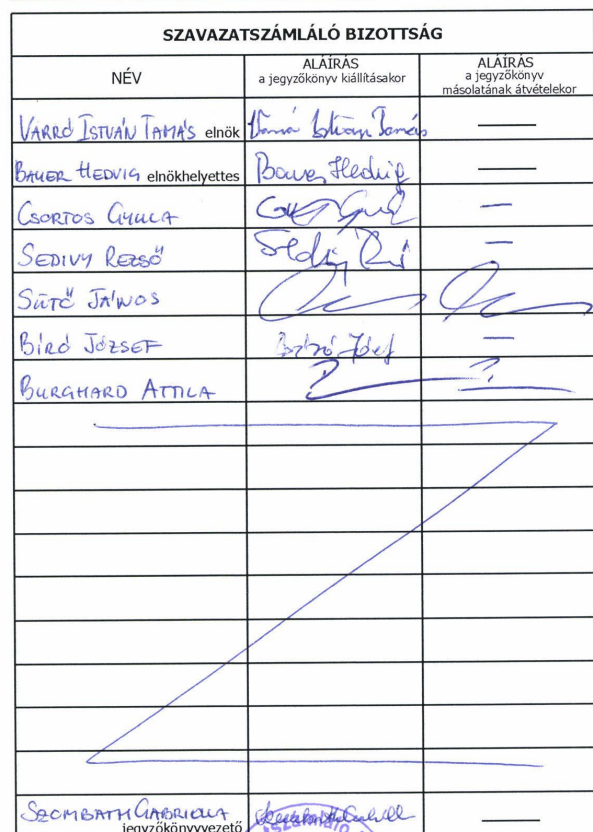 SZAVAZATSZÁMLÁLÓ BIZOTTSÁG
NÉV
ALÁÍRÁS
a jegyzőkönyv kiállításakor
ALÁÍRÁS
a jegyzőkönyv
másolatának átvételekor
VARRÓ ISTVÁN TAMÁS elnök Varró István Tamás —
BAUER HEDVIG elnökhelyettes Bauer Hedvig —
CSORTOS GYULA —
SEDIVY REZSŐ —
SÜTŐ JÁNOS
BÍRÓ JÓZSEF Bíró József —
BURGHARD ATTILA
SZOMBATH GABRIELLA
jegyzőkönyvvezető —